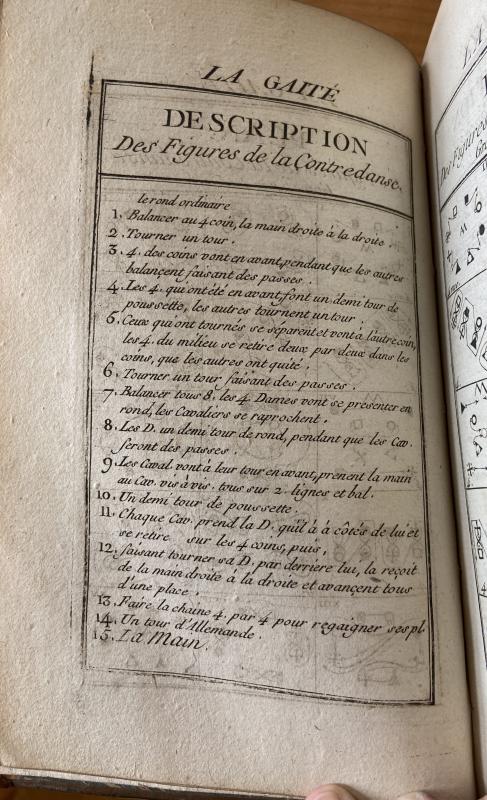 LA GAITÉ
DESCRIPTION
Des Figures de la Contredanse.
le rond ordinaire
1. Balancer au 4 coin, la main droite à la droite.
2. Tourner un tour.
3. 4. des coins vont en avant, pendant que les autres
balançent faisant des passes.
4. Les 4. qui ont été en avant, font un demi tour de
poussette, les autres tournent un tour.
5. Ceux qui ont tournés se separent et vont à l'autre coin,
les 4. du milieu se retire deux par deux dans les
coins, que les autres ont quité.
6. Tourner un tour faisant des passes.
7. Balancer tous 8. les 4 Dames vont se presenter en
rond, les Cavaliers se raprochent.
8. Les D. un demi tour de rond, pendant que les Cav.
feront des passes.
9. Les Caval. vont à leur tour en avant, prenent la main
au Cav. vis à vis. tous sur 2. lignes et bal.
10. Un demi tour de poussette.
11. Chaque Cav. prend la D. qu'il à à côtés de lui et
se retire sur les 4 coins, puis,
12. faisant tourner sa D. par derriere lui, la reçoit
de la main droite à la droite et avançent tous
d'une place.
13. Faire la chaine 4. par 4 pour regaigner ses pl.
14. Un tour d'Allemande.
15. La Main.